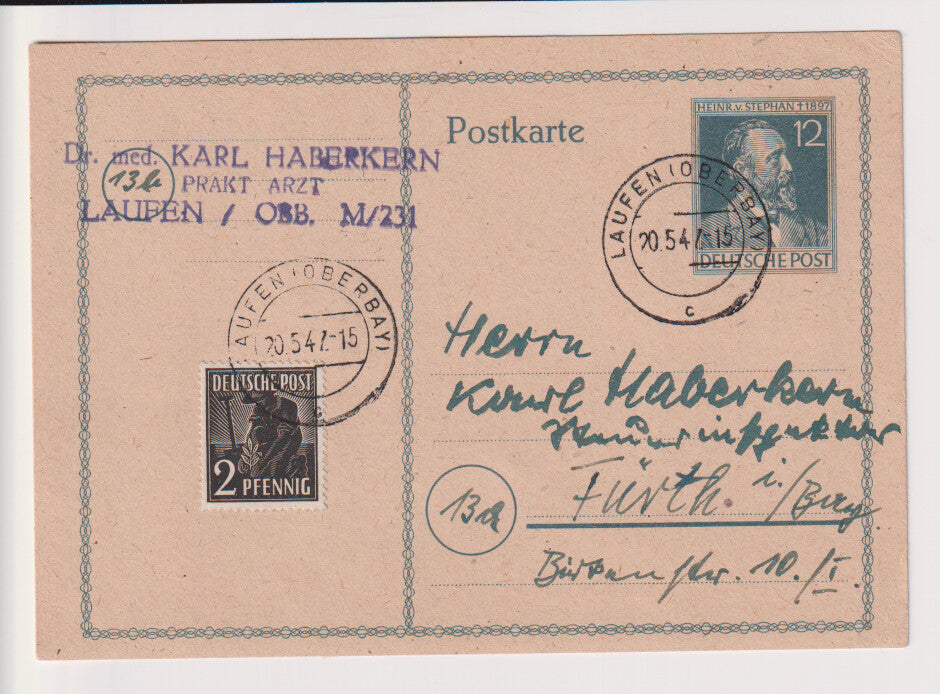 Dr. med. KARL HABERKERN
13b
PRAKT ARZT
LAUFEN / OBB. M/231
Postkarte
HEINR. v. STEPHAN † 1897
12
DEUTSCHE POST
LAUFEN (OBERBAY)
20.5.47.-15
c
LAUFEN (OBERBAY)
20.5.47.-15
c
DEUTSCHE POST
2 PFENNIG
Herrn
Karl Haberkern
Steuerinspektor
13a
Fürth i./Bay
Birkenstr. 10./I.